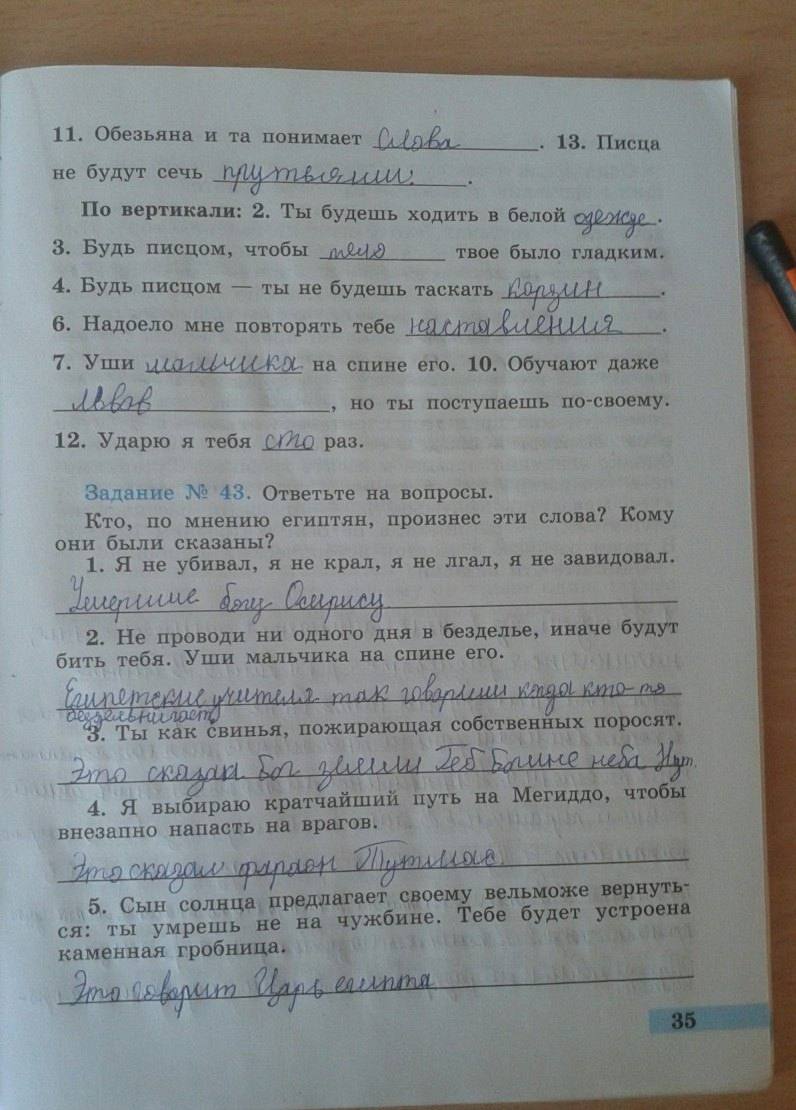 11. Обезьяна и та понимает слова. 13. Писца
не будут сечь прутьями.
По вертикали: 2. Ты будешь ходить в белой одежде.
3. Будь писцом, чтобы тело твое было гладким.
4. Будь писцом — ты не будешь таскать корзин.
6. Надоело мне повторять тебе наставления.
7. Уши мальчика на спине его. 10. Обучают даже
львов, но ты поступаешь по-своему.
12. Ударю я тебя сто раз.
Задание № 43. Ответьте на вопросы.
Кто, по мнению египтян, произнес эти слова? Кому
они были сказаны?
1. Я не убивал, я не крал, я не лгал, я не завидовал.
Умершие богу Осирису
2. Не проводи ни одного дня в безделье, иначе будут
бить тебя. Уши мальчика на спине его.
Египетские учителя так говорили когда кто-то
бездельничает
3. Ты как свинья, пожирающая собственных поросят.
Это сказал Бог земли Геб Богине неба Нут.
4. Я выбираю кратчайший путь на Мегиддо, чтобы
внезапно напасть на врагов.
Это сказал фараон Тутмос
5. Сын солнца предлагает своему вельможе вернуть-
ся: ты умрешь не на чужбине. Тебе будет устроена
каменная гробница.
Это говорит Царь египта
35